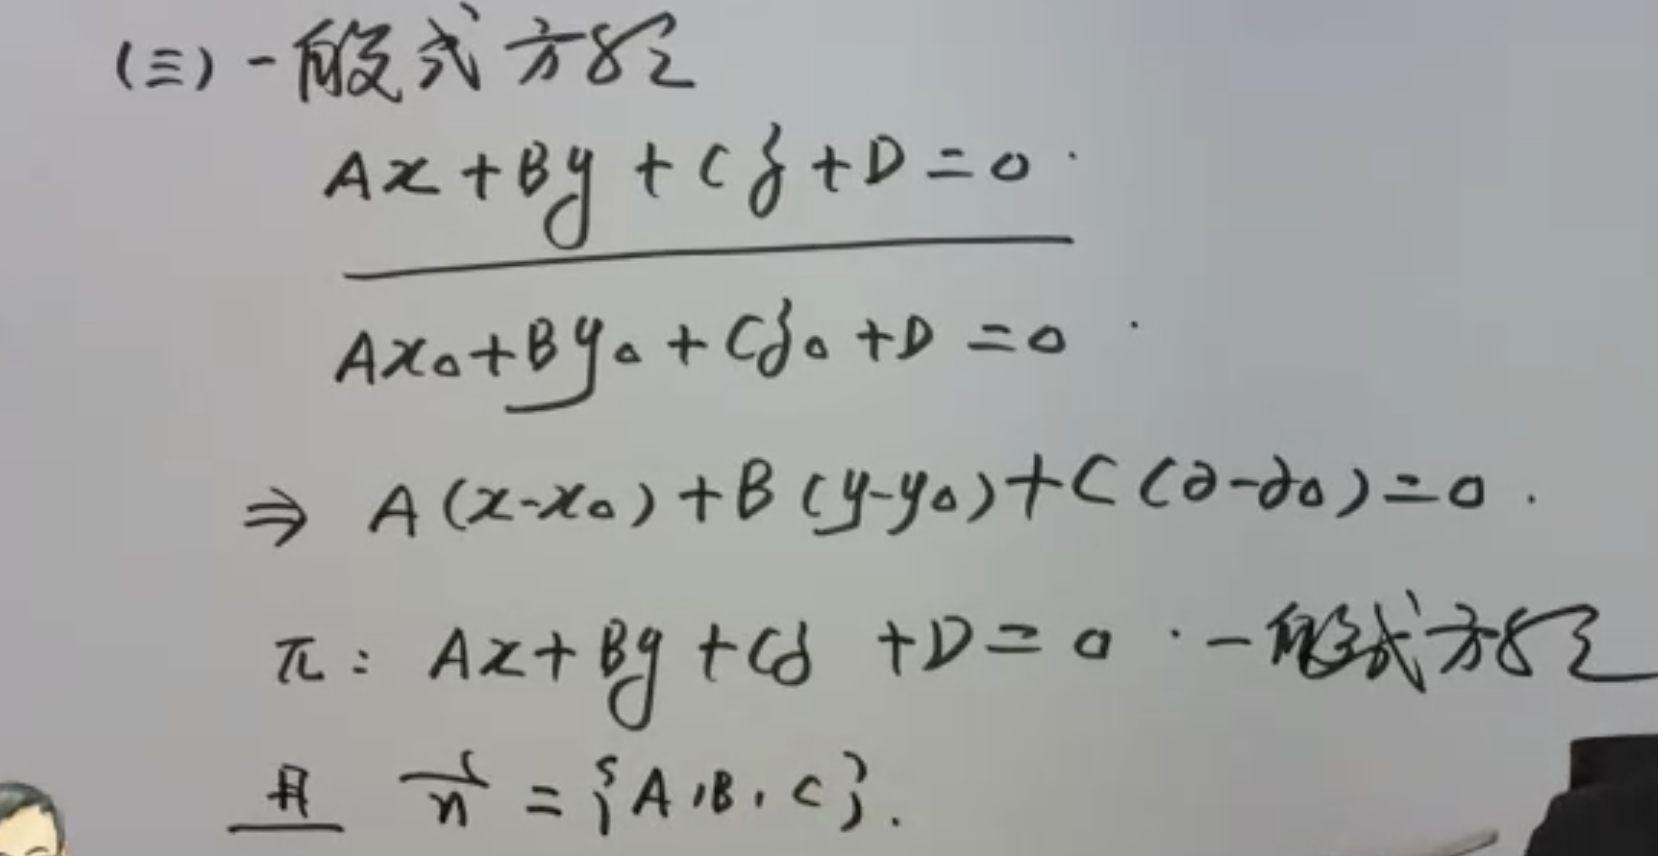 (三)一般式方程
Ax+By+Cz+D=0.
Ax₀+By₀+Cz₀+D=0.
⇒ A(x-x₀)+B(y-y₀)+C(z-z₀)=0.
π: Ax+By+Cz+D=0.一般式方程
且 n⃗={A,B,C}.